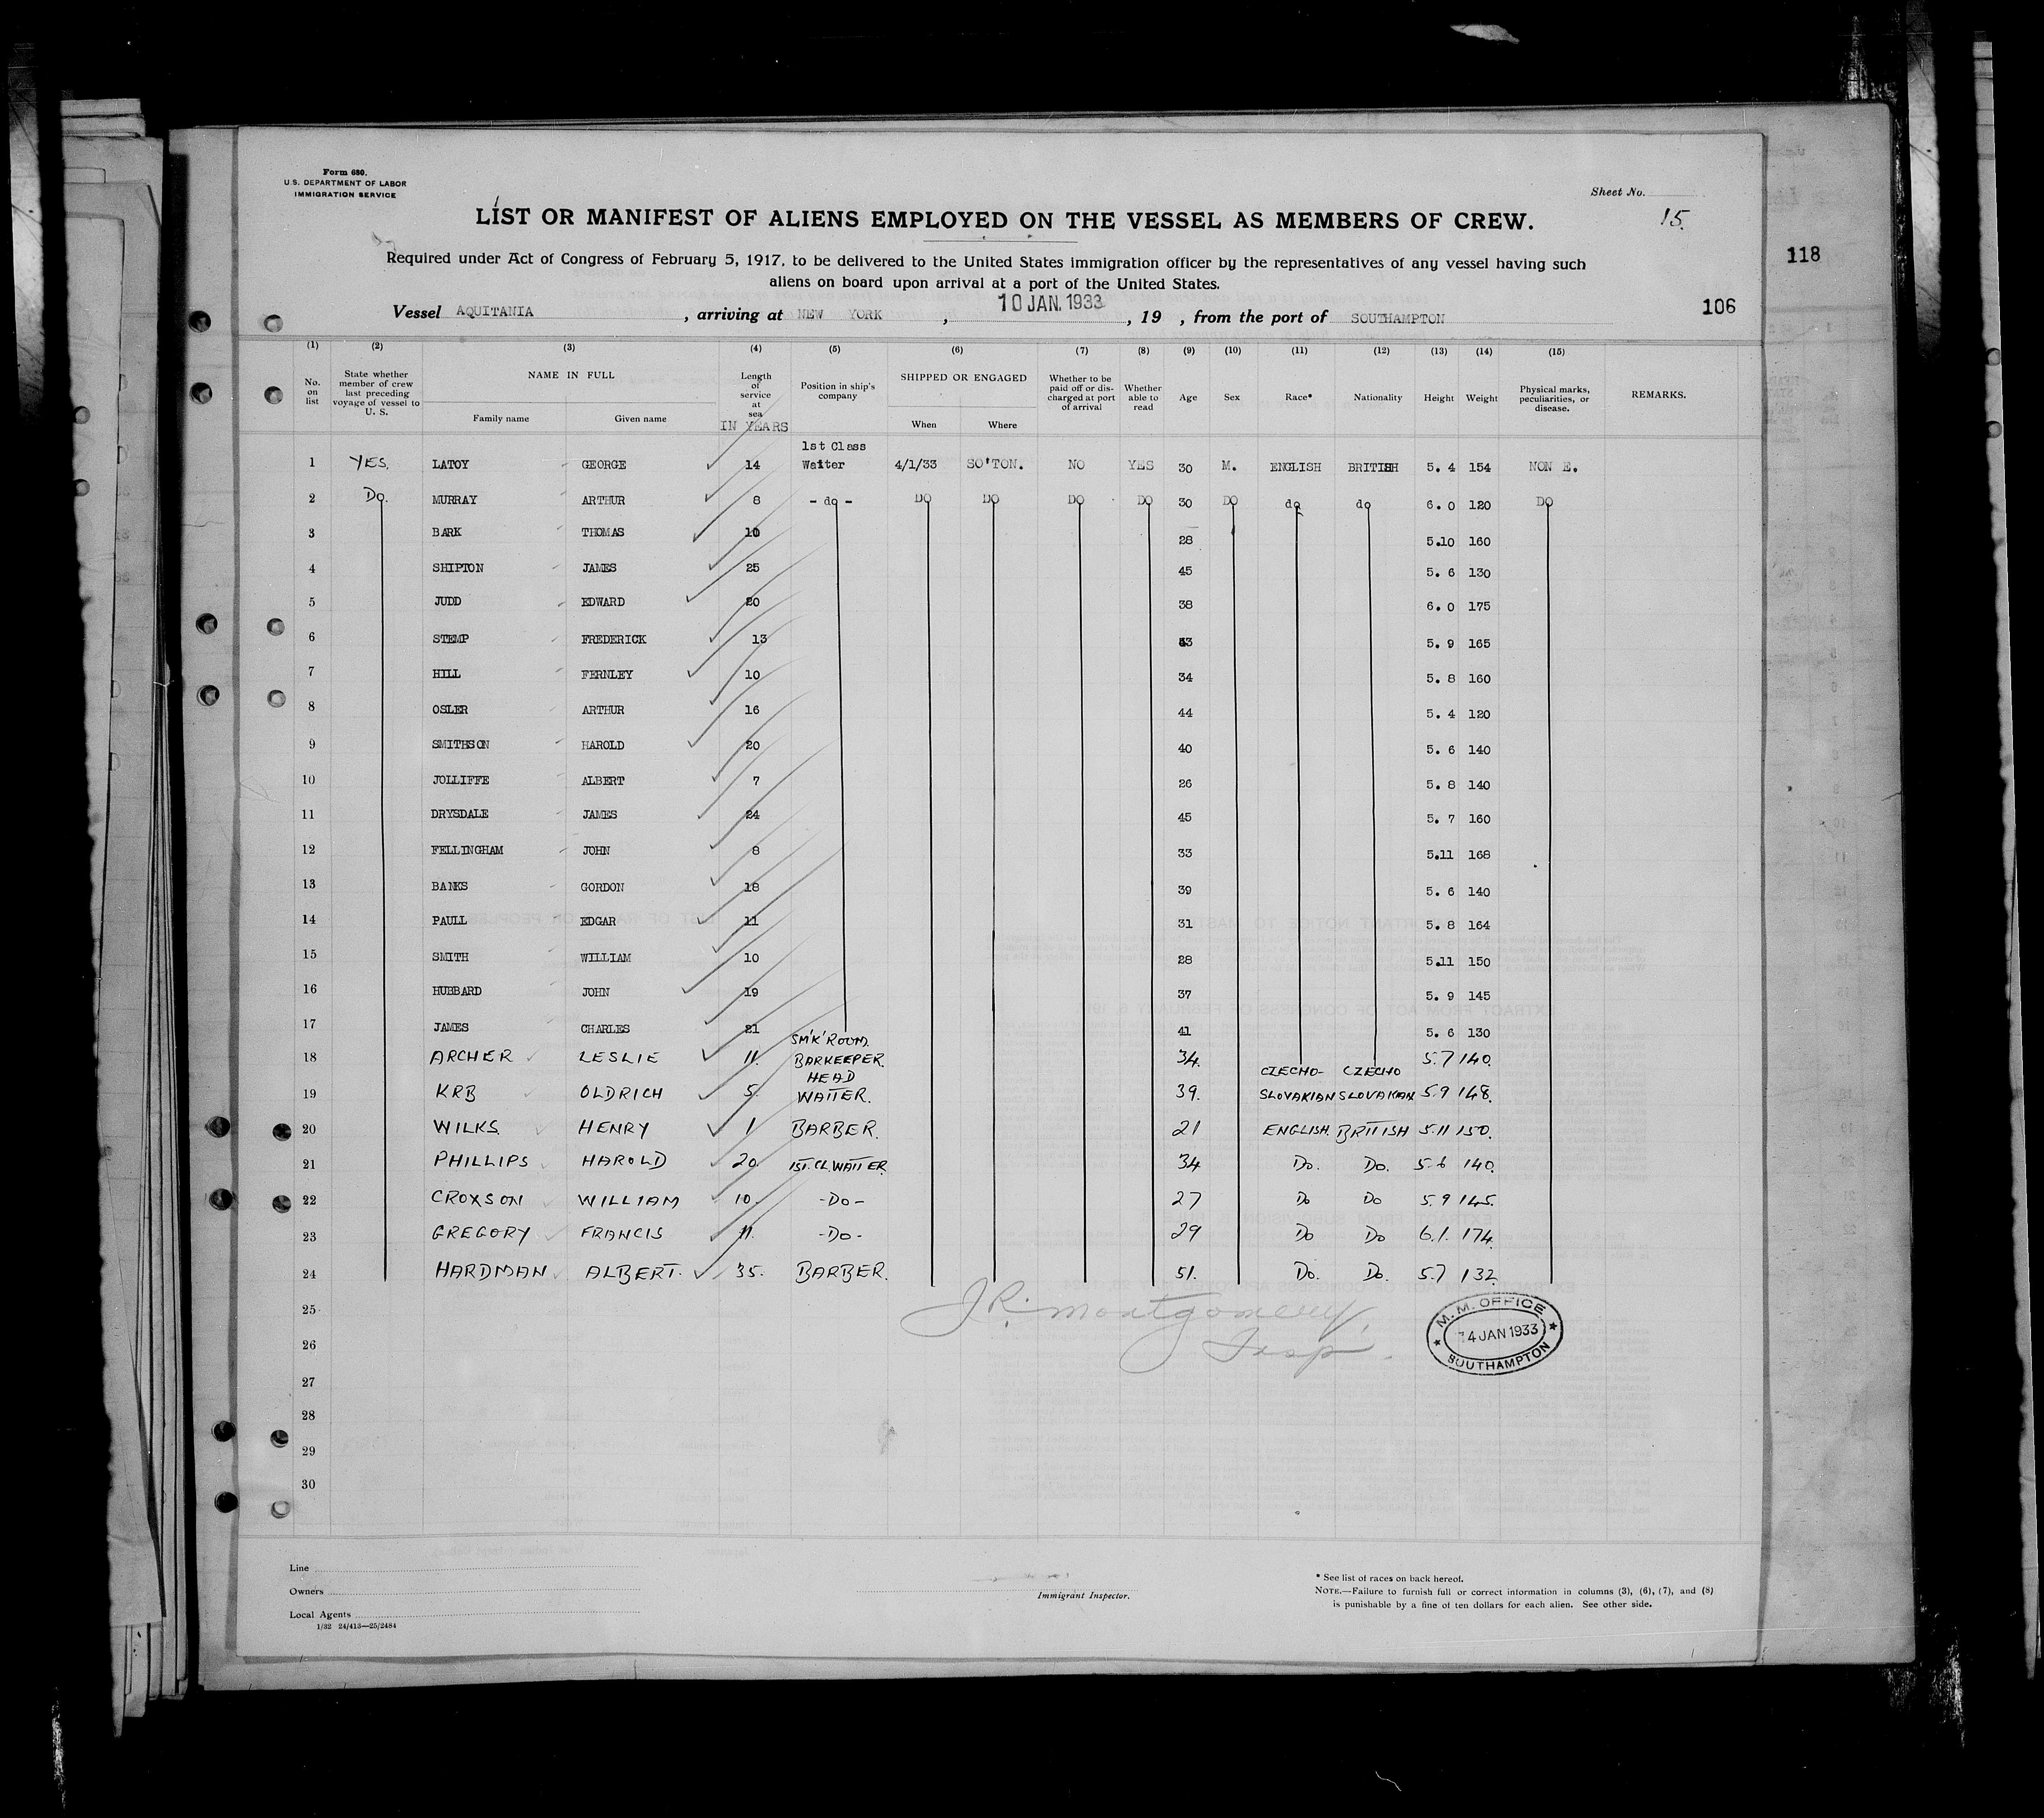 Form 680.
U.S. DEPARTMENT OF LABOR
IMMIGRATION SERVICE
Sheet No.
15.
LIST OR MANIFEST OF ALIENS EMPLOYED ON THE VESSEL AS MEMBERS OF CREW.
118
Required under Act of Congress of February 5, 1917, to be delivered to the United States immigration officer by the representatives of any vessel having such
aliens on board upon arrival at a port of the United States.
106
Vessel AQUITANIA , arriving at NEW YORK , 10 JAN. 1933 , 19 , from the port of SOUTHAMPTON
(1) (2) (3) (4) (5) (6) (7) (8) (9) (10) (11) (12) (13) (14) (15)
No. on list State whether member of crew last preceding voyage of vessel to U. S. NAME IN FULL Family name Given name Length of service at sea IN YEARS Position in ship's company SHIPPED OR ENGAGED When Where Whether to be paid off or discharged at port of arrival Whether able to read Age Sex Race* Nationality Height Weight Physical marks, peculiarities, or disease. REMARKS.
1 YES. LATOY GEORGE 14 1st Class Waiter 4/1/33 SO'TON. NO YES 30 M. ENGLISH BRITISH 5. 4 154 NON E.
2 Do. MURRAY ARTHUR 8 - do - DO DO DO DO 30 DO do do 6. 0 120 DO
3 BARK THOMAS 10 28 5.10 160
4 SHIPTON JAMES 25 45 5. 6 130
5 JUDD EDWARD 20 38 6. 0 175
6 STEMP FREDERICK 13 5. 9 165
7 HILL FERNLEY 10 34 5. 8 160
8 OSLER ARTHUR 16 44 5. 4 120
9 SMITHSON HAROLD 20 40 5. 6 140
10 JOLLIFFE ALBERT 7 26 5. 8 140
11 DRYSDALE JAMES 24 45 5. 7 160
12 FELLINGHAM JOHN 8 33 5.11 168
13 BANKS GORDON 18 39 5. 6 140
14 PAULL EDGAR 11 31 5. 8 164
15 SMITH WILLIAM 10 28 5.11 150
16 HUBBARD JOHN 19 37 5. 9 145
17 JAMES CHARLES 21 41 5. 6 130
18 ARCHER LESLIE 11. SM'K' ROOM. BARKEEPER. 34. 5.7 140.
19 KRB OLDRICH 5. HEAD WAITER. 39. CZECHO-SLOVAKIAN CZECHO SLOVAKIAN 5.9 148.
20 WILKS. HENRY 1 BARBER. 21 ENGLISH. BRITISH 5.11 150.
21 PHILLIPS HAROLD 20. 1ST. CL. WAITER. 34 Do. Do. 5.6 140.
22 CROXSON WILLIAM 10. -Do- 27 Do Do 5.9 145.
23 GREGORY FRANCIS 11. -Do- 29 Do Do 6.1. 174.
24 HARDMAN ALBERT. 35. BARBER. 51. Do. Do. 5.7 132.
25
26
27
28
29
30
J.R. Montgomery.
Insp.
M.M. OFFICE
4 JAN 1933
SOUTHAMPTON
Line
Owners
Local Agents
1/32 24/413—25/2484
Immigrant Inspector.
* See list of races on back hereof.
NOTE.—Failure to furnish full or correct information in columns (3), (6), (7), and (8)
is punishable by a fine of ten dollars for each alien. See other side.